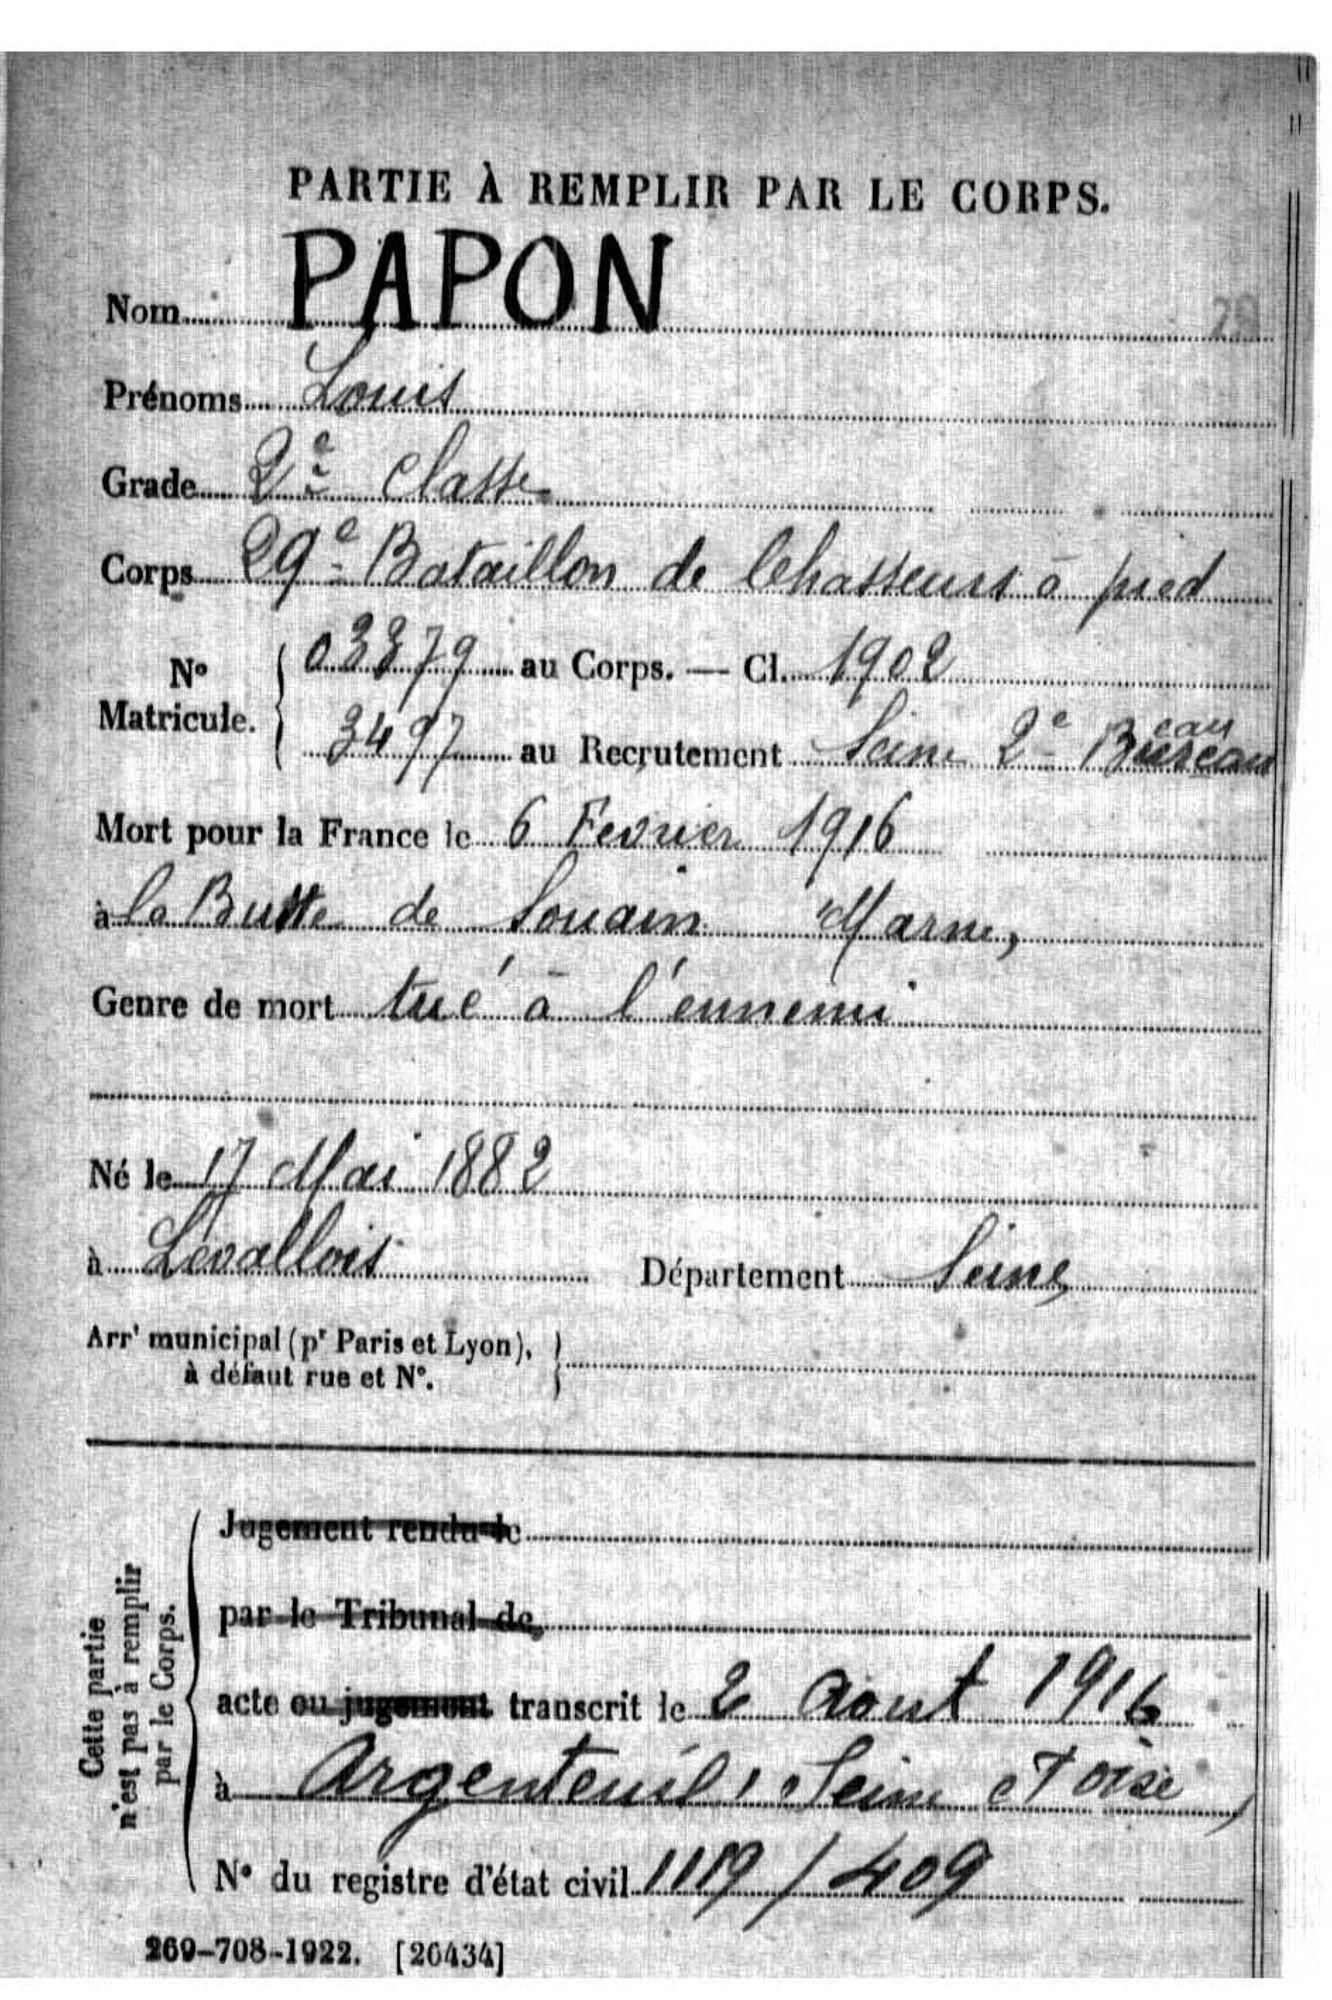 PARTIE À REMPLIR PAR LE CORPS.
Nom PAPON
Prénoms Louis
Grade 2e Classe
Corps 29e Bataillon de Chasseurs à pied
No Matricule. 03379 au Corps. — Cl. 1902
3497 au Recrutement Seine 2e Bureau
Mort pour la France le 6 Fevrier 1916
à la Butte de Souain Marne,
Genre de mort tué à l'ennemi
Né le 17 Mai 1882
à Levallois Département Seine
Arrt municipal (pr Paris et Lyon),
à défaut rue et No.
Cette partie
n'est pas à remplir
par le Corps.
Jugement rendu le
par le Tribunal de
acte ou jugement transcrit le 2 Aout 1916
à Argenteuil, Seine et Oise,
No du registre d'état civil 1119 / 409
269-708-1922. [26434]